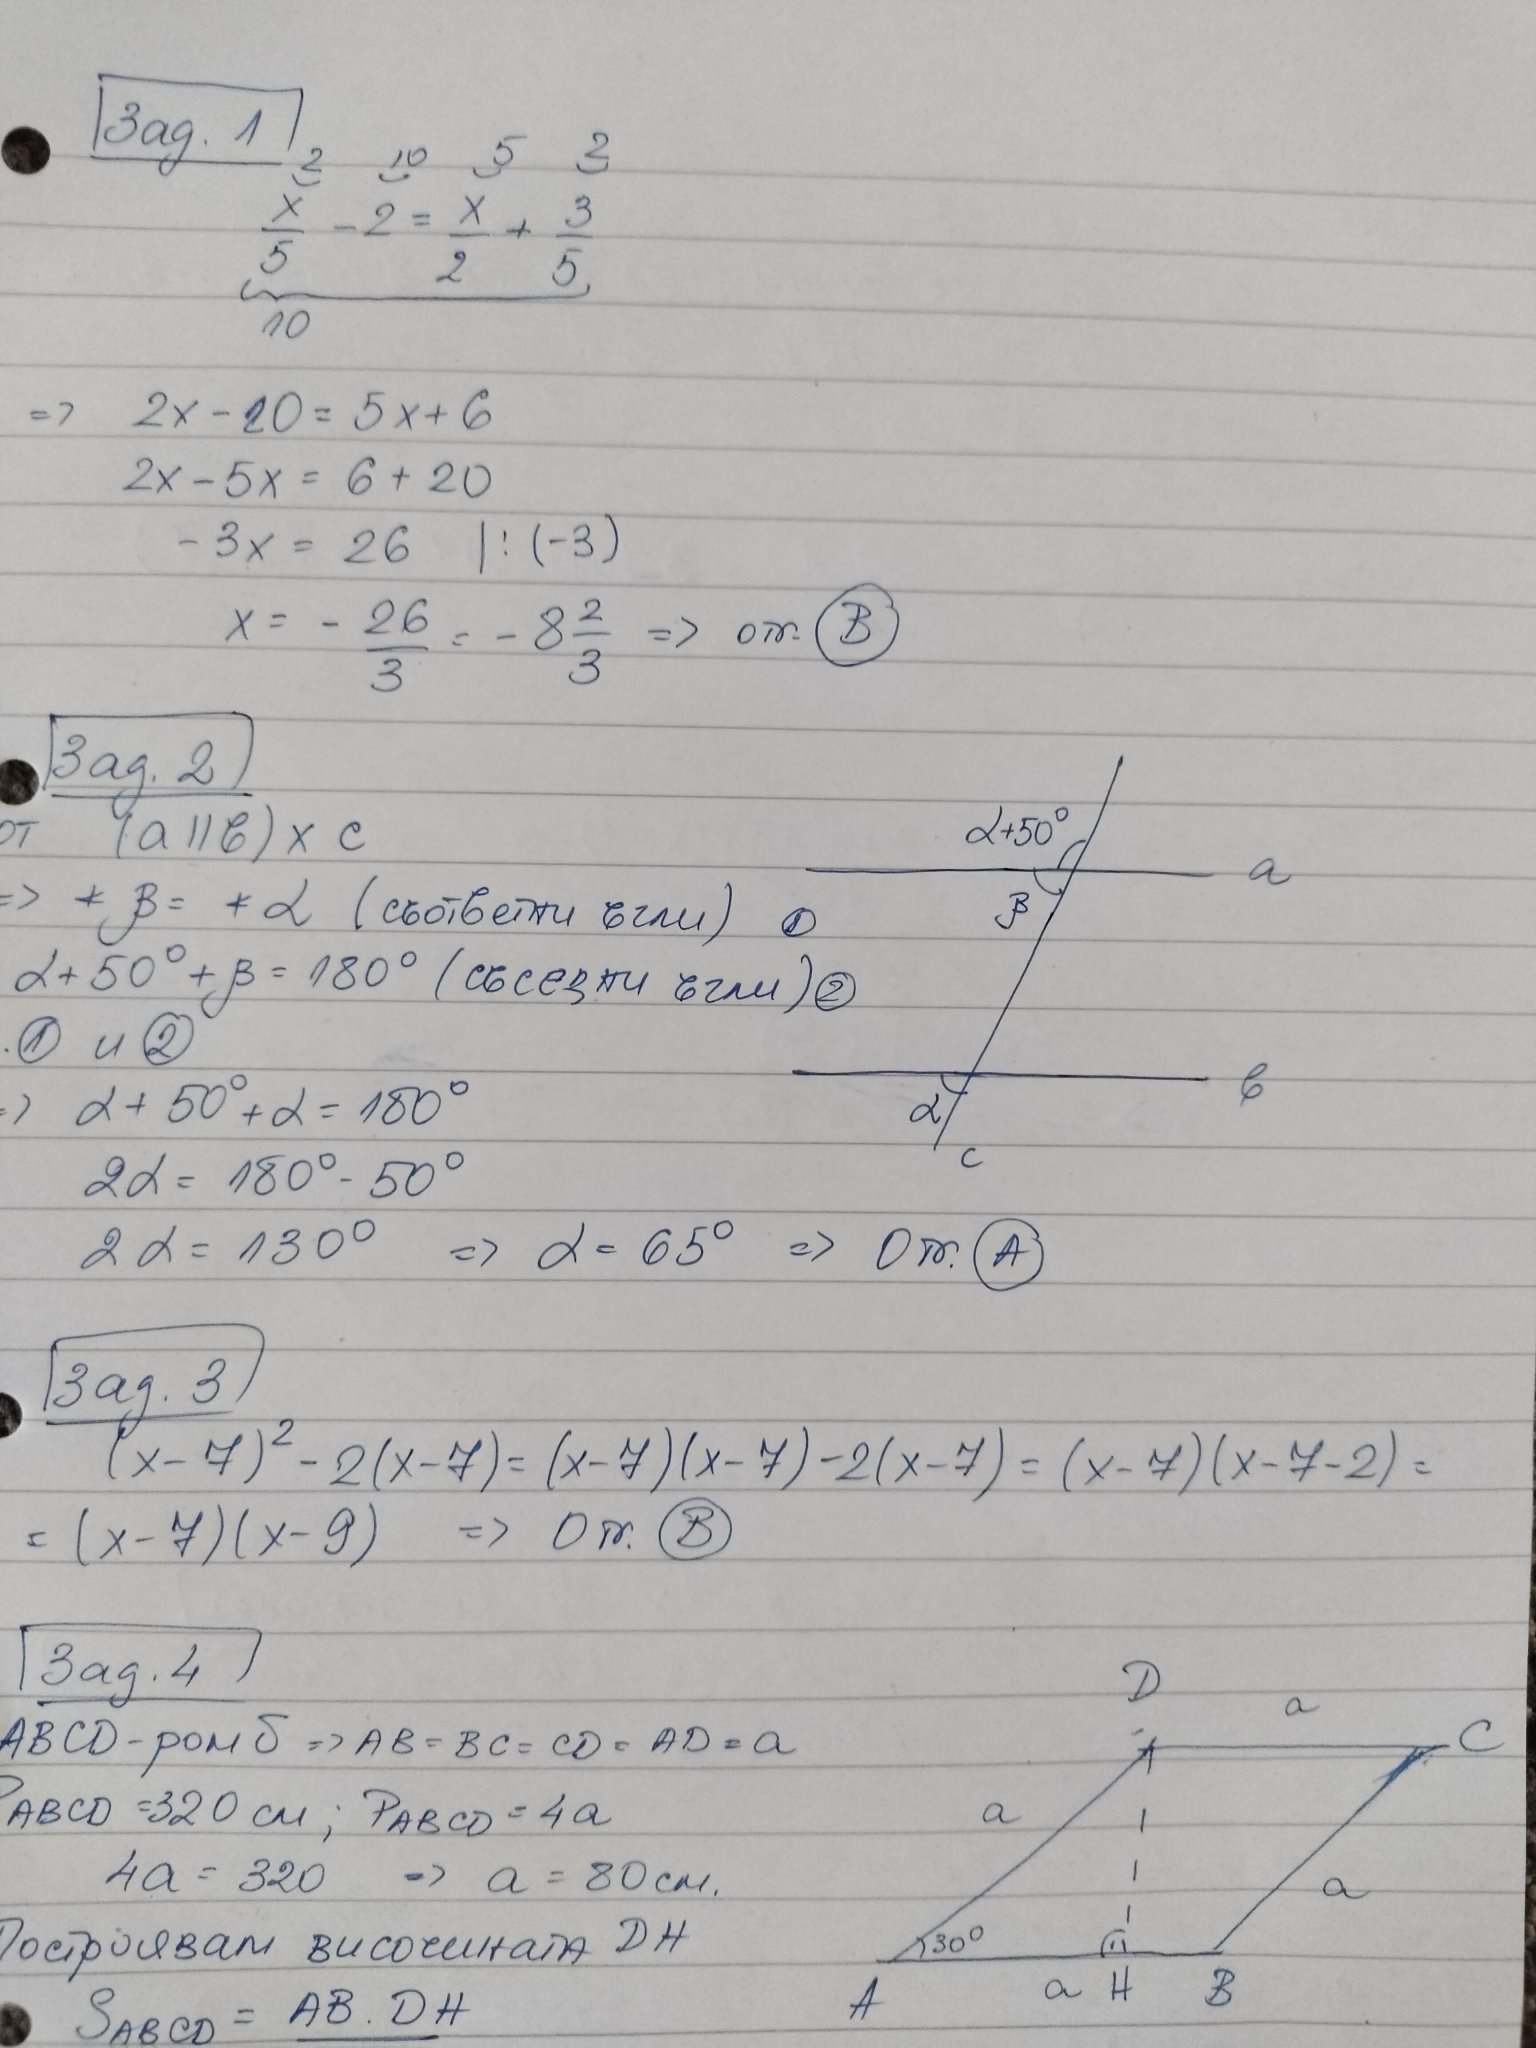 Зад. 1
2 10 5 2
x/5 - 2 = x/2 + 3/5
10
=> 2x - 20 = 5x + 6
2x - 5x = 6 + 20
-3x = 26 |:(-3)
x = - 26/3 = - 8 2/3 => от. В
Зад. 2
от (a || b) x c
=> ∢ β = ∢ α (съответни ъгли) ①
α + 50° + β = 180° (съседни ъгли) ②
① и ②
=> α + 50° + α = 180°
2α = 180° - 50°
2α = 130° => α = 65° => От. А
α+50°
a
β
b
α
c
Зад. 3
(x - 7)² - 2(x - 7) = (x - 7)(x - 7) - 2(x - 7) = (x - 7)(x - 7 - 2) =
= (x - 7)(x - 9) => От. В
Зад. 4
ABCD - ромб => AB = BC = CD = AD = a
P ABCD = 320 см ; P ABCD = 4a
4a = 320 => a = 80 см.
Построявам височината DH
S ABCD = AB . DH
D
a
C
a
a
30°
A
a
H
B